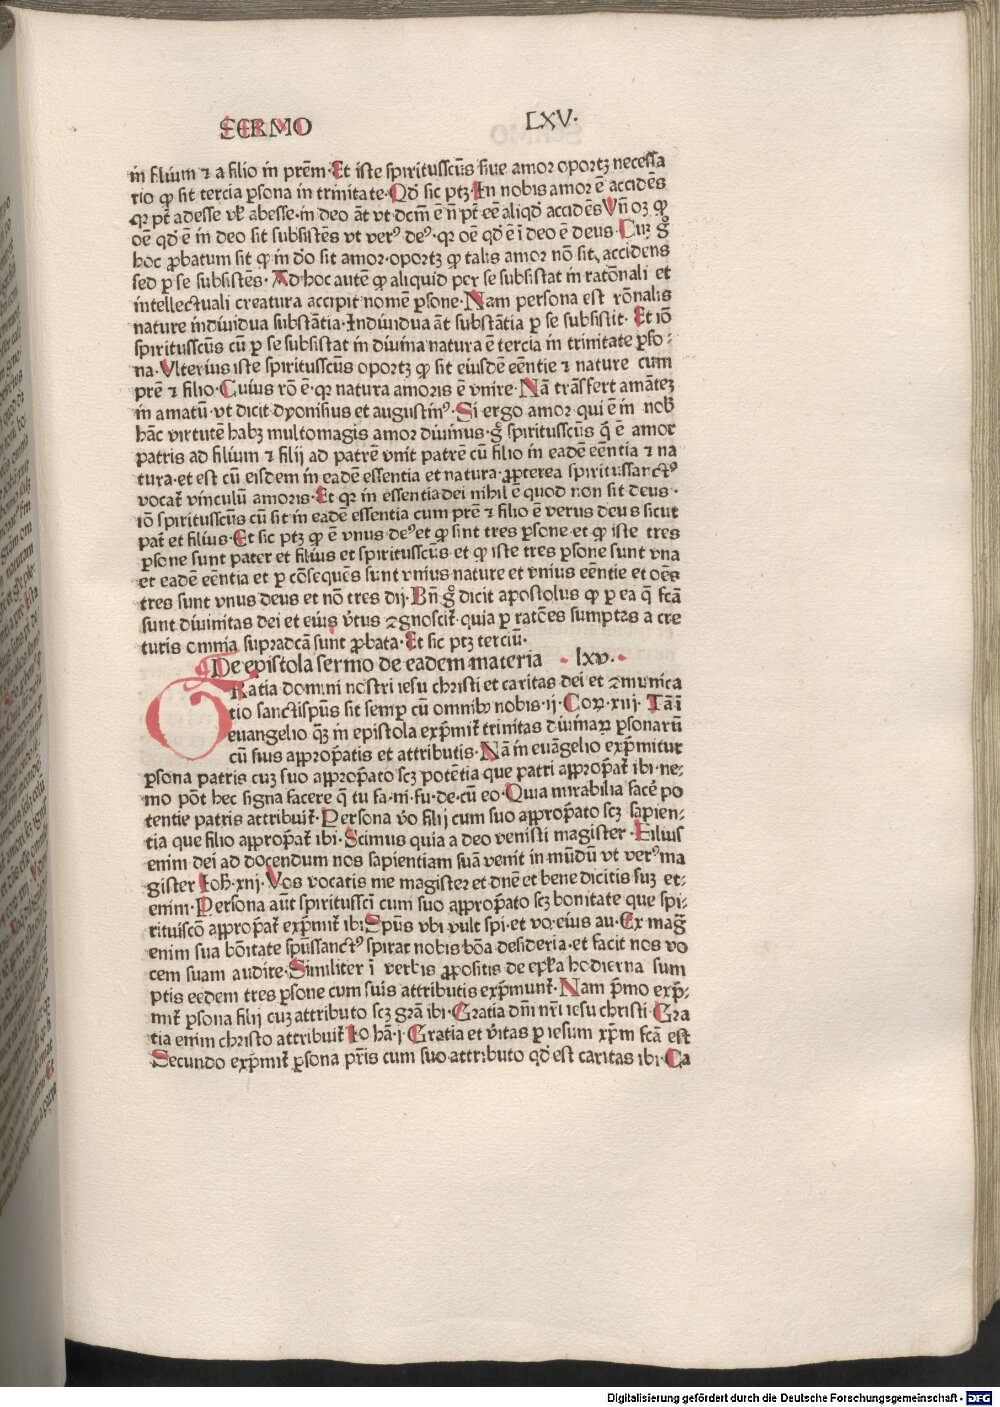 SERMO LXV.
in filium ⁊ a filio in prēm·Et iste spiritusscūs siue amor oportꝫ necessa
rio ꝙ sit tercia ꝑsona in trinitate·Qd̛ sic ptꝫ·In nobis amor ē accidēs
qꝛ pt̄ adesse vl̛ abesse·in deo āt vt dcm̄ ē n̄ pt̄ eē aliqd̛ accidēs Vn̄ oꝫ ꝙ
oē qd̛ ē in deo sit subsistēs vt verꝰ deꝰ·qꝛ oē qd̛ ē ī deo ē deus·Cuꝫ gͦ
hoc ꝓbatum sit ꝙ in dō sit amor·oportꝫ ꝙ talis amor nō sit accidens
sed ꝑ se subsistēs·Ad hoc autē ꝙ aliquid per se subsistat in ratōnali et
intellectuali creatura accipit nomē ꝑsone·Nam persona est rōnalis
nature indiuidua substātia·Indiuidua āt substātia ꝑ se subsistit·Et iō
spiritusscūs cū ꝑ se subsistat in diuina natura ē tercia in trinitate ꝑso⸗
na·Vlterius iste spiritusscūs oportꝫ ꝙ sit eiusdē eēntie ⁊ nature cum
prē ⁊ filio·Cuius rō ē·qꝛ natura amoris ē vnire·Nā trāsfert amāteꝫ
in amatū·vt dicit dyonisius et augustinꝰ·Si ergo amor qui ē in nob̄
hāc virtutē habꝫ multomagis amor diuinus·gͦ spiritusscūs q̄ ē amor
patris ad filium ⁊ filij ad patrē vnit patrē cū filio in eadē eēntia ⁊ na
tura·et est cū eisdem in eadē essentia et natura·ꝓpterea spiritussanctꝰ
vocat̛ vinculū amoris·Et qꝛ in essentia dei nihil ē quod non sit deus·
iō spiritusscūs cū sit in eadē essentia cum prē ⁊ filio ē verus deus sicut
pat̛ et filius·Et sic ptꝫ ꝙ ē vnus deꝰ et ꝙ sint tres ꝑsone·et ꝙ iste tres
ꝑsone sunt pater et filius et spiritusscūs·et ꝙ iste tres ꝑsone sunt vna
et eadē eēntia et ꝑ cōsequēs sunt vnius nature et vnius eēntie et oēs
tres sunt vnus deus et nō tres dij·Bn̄ gͦ dicit apostolus ꝙ ꝑ ea q̄ fcā
sunt diuinitas dei et eius v̛tus ꝯgnoscit̛·quia ꝑ ratōes sumptas a cre
turis omnia supradcā sunt ꝓbata·Et sic ptꝫ terciū·
De epistola sermo de eadem materia · lxv.·
GRatia domini nostri iesu christi et caritas dei et ꝯmunica
tio sanctispūs sit semꝑ cū omnibꝫ nobis·ij·Coꝝ·xiij·Tā ī
euangelio qꝫ in epistola exp̄mit̛ trinitas diuinaꝝ ꝑsonarū
cū suis aꝓprop̄atis et attributis·Nā in euāgelio exp̄mitur
ꝑsona patris cuꝫ suo aꝓprop̄ato scꝫ potētia que patri aꝓprop̄at̛ ibi·ne⸗
mo pōt hec signa facere q̄ tu fa·ni·fu·de·cū eo·Quia mirabilia facē po
tentie patris attribuit̛·Persona v̛o filij cum suo aꝓprop̄ato scꝫ sapien⸗
tia que filio aꝓprop̄at̛ ibi·Scimus quia a deo venisti magister·Filius
enim dei ad docendum nos sapientiam suā venit in mūdū vt verꝰ ma
gister Ioh̄·xiij·Vos vocatis me magister et dnē et bene dicitis suꝫ et⸗
enim·Persona aūt spiritussci̅ cum suo aꝓprop̄ato scꝫ bonitate que spi⸗
rituiscō aꝓprop̄at̛ exp̄mit̛ ibi Spūs vbi vult spi·et vo·eius au·Ex mag̛
enim sua bōitate spūssanctꝰ spirat nobis bōa desideria·et facit nos vo
cem suam audire·Similiter ī verbis ꝓpositis de epl̛a hodierna sum
ptis eedem tres ꝑsone cum suis attributis exp̄munt̛·Nam p̄mo exp̄⸗
mit̛ ꝑsona filij cuꝫ attributo scꝫ grā ibi·Gratia dn̄i nr̄i iesu christi·Gra
tia enim christo attribuit̛ Iohā·j·Gratia et v̛itas ꝑ iesum xp̄m fcā est
Secundo exp̄mit̛ ꝑsona pr̄is cum suo attributo qd̛ est caritas ibi·Ca
Digitalisierung gefördert durch die Deutsche Forschungsgemeinschaft - DFG